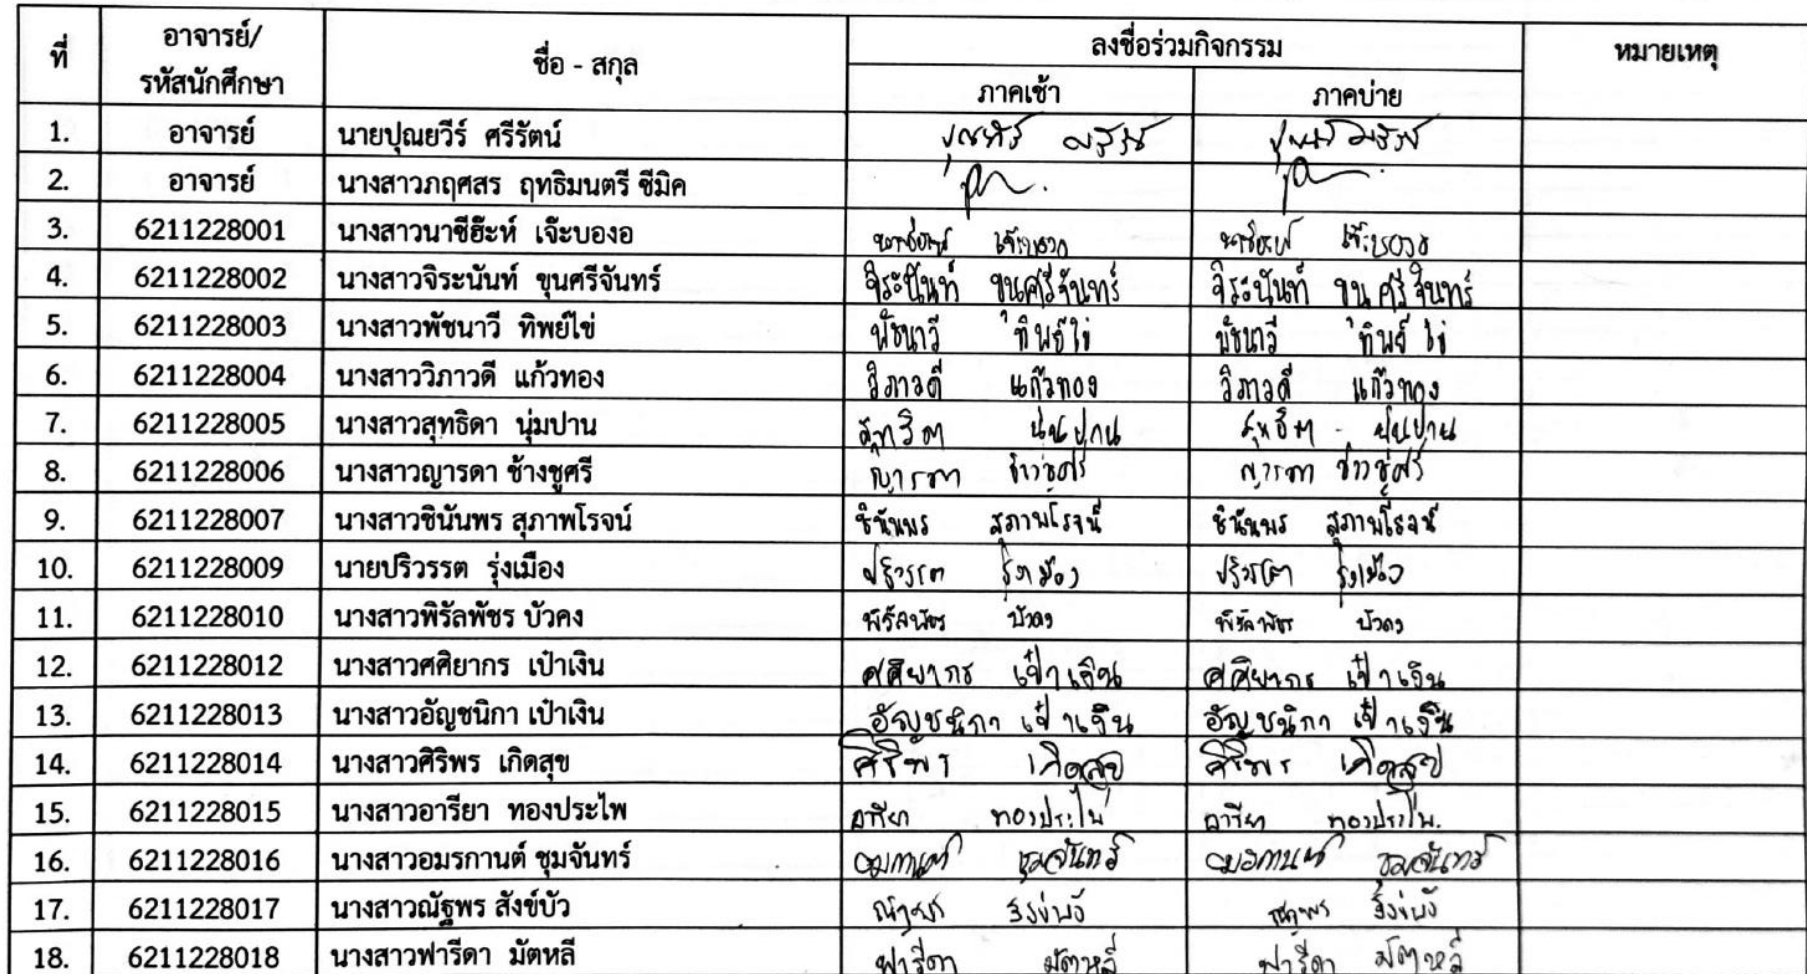 ที่ อาจารย์/ ชื่อ - สกุล ลงชื่อร่วมกิจกรรม หมายเหตุ
รหัสนักศึกษา ภาคเช้า ภาคบ่าย
1. อาจารย์ นายปุณยวีร์ ศรีรัตน์
2. อาจารย์ นางสาวภฤศสร ฤทธิมนตรี ซีมิค
3. 6211228001 นางสาวนาซีฮ๊ะห์ เจ๊ะบองอ
4. 6211228002 นางสาวจิระนันท์ ขุนศรีจันทร์ จิระนันท์ ขุนศรีจันทร์ จิระนันท์ ขุนศรีจันทร์
5. 6211228003 นางสาวพัชนาวี ทิพย์ไข่ พัชนาวี ทิพย์ไข่ พัชนาวี ทิพย์ไข่
6. 6211228004 นางสาววิภาวดี แก้วทอง วิภาวดี แก้วทอง วิภาวดี แก้วทอง
7. 6211228005 นางสาวสุทธิดา นุ่มปาน
8. 6211228006 นางสาวญารดา ช้างชูศรี
9. 6211228007 นางสาวชินันพร สุภาพโรจน์ ชินันพร สุภาพโรจน์ ชินันพร สุภาพโรจน์
10. 6211228009 นายปริวรรต รุ่งเมือง
11. 6211228010 นางสาวพิรัลพัชร บัวคง พิรัลพัชร บัวคง พิรัลพัชร บัวคง
12. 6211228012 นางสาวศศิยากร เป๋าเงิน ศศิยากร เป๋าเงิน ศศิยากร เป๋าเงิน
13. 6211228013 นางสาวอัญชนิกา เป๋าเงิน อัญชนิกา เป๋าเงิน อัญชนิกา เป๋าเงิน
14. 6211228014 นางสาวศิริพร เกิดสุข ศิริพร เกิดสุข ศิริพร เกิดสุข
15. 6211228015 นางสาวอารียา ทองประไพ อารียา ทองประไพ อารียา ทองประไพ
16. 6211228016 นางสาวอมรกานต์ ชุมจันทร์ ชุมจันทร์ ชุมจันทร์
17. 6211228017 นางสาวณัฐพร สังข์บัว
18. 6211228018 นางสาวฟารีดา มัตหลี ฟารีดา มัตหลี ฟารีดา มัตหลี